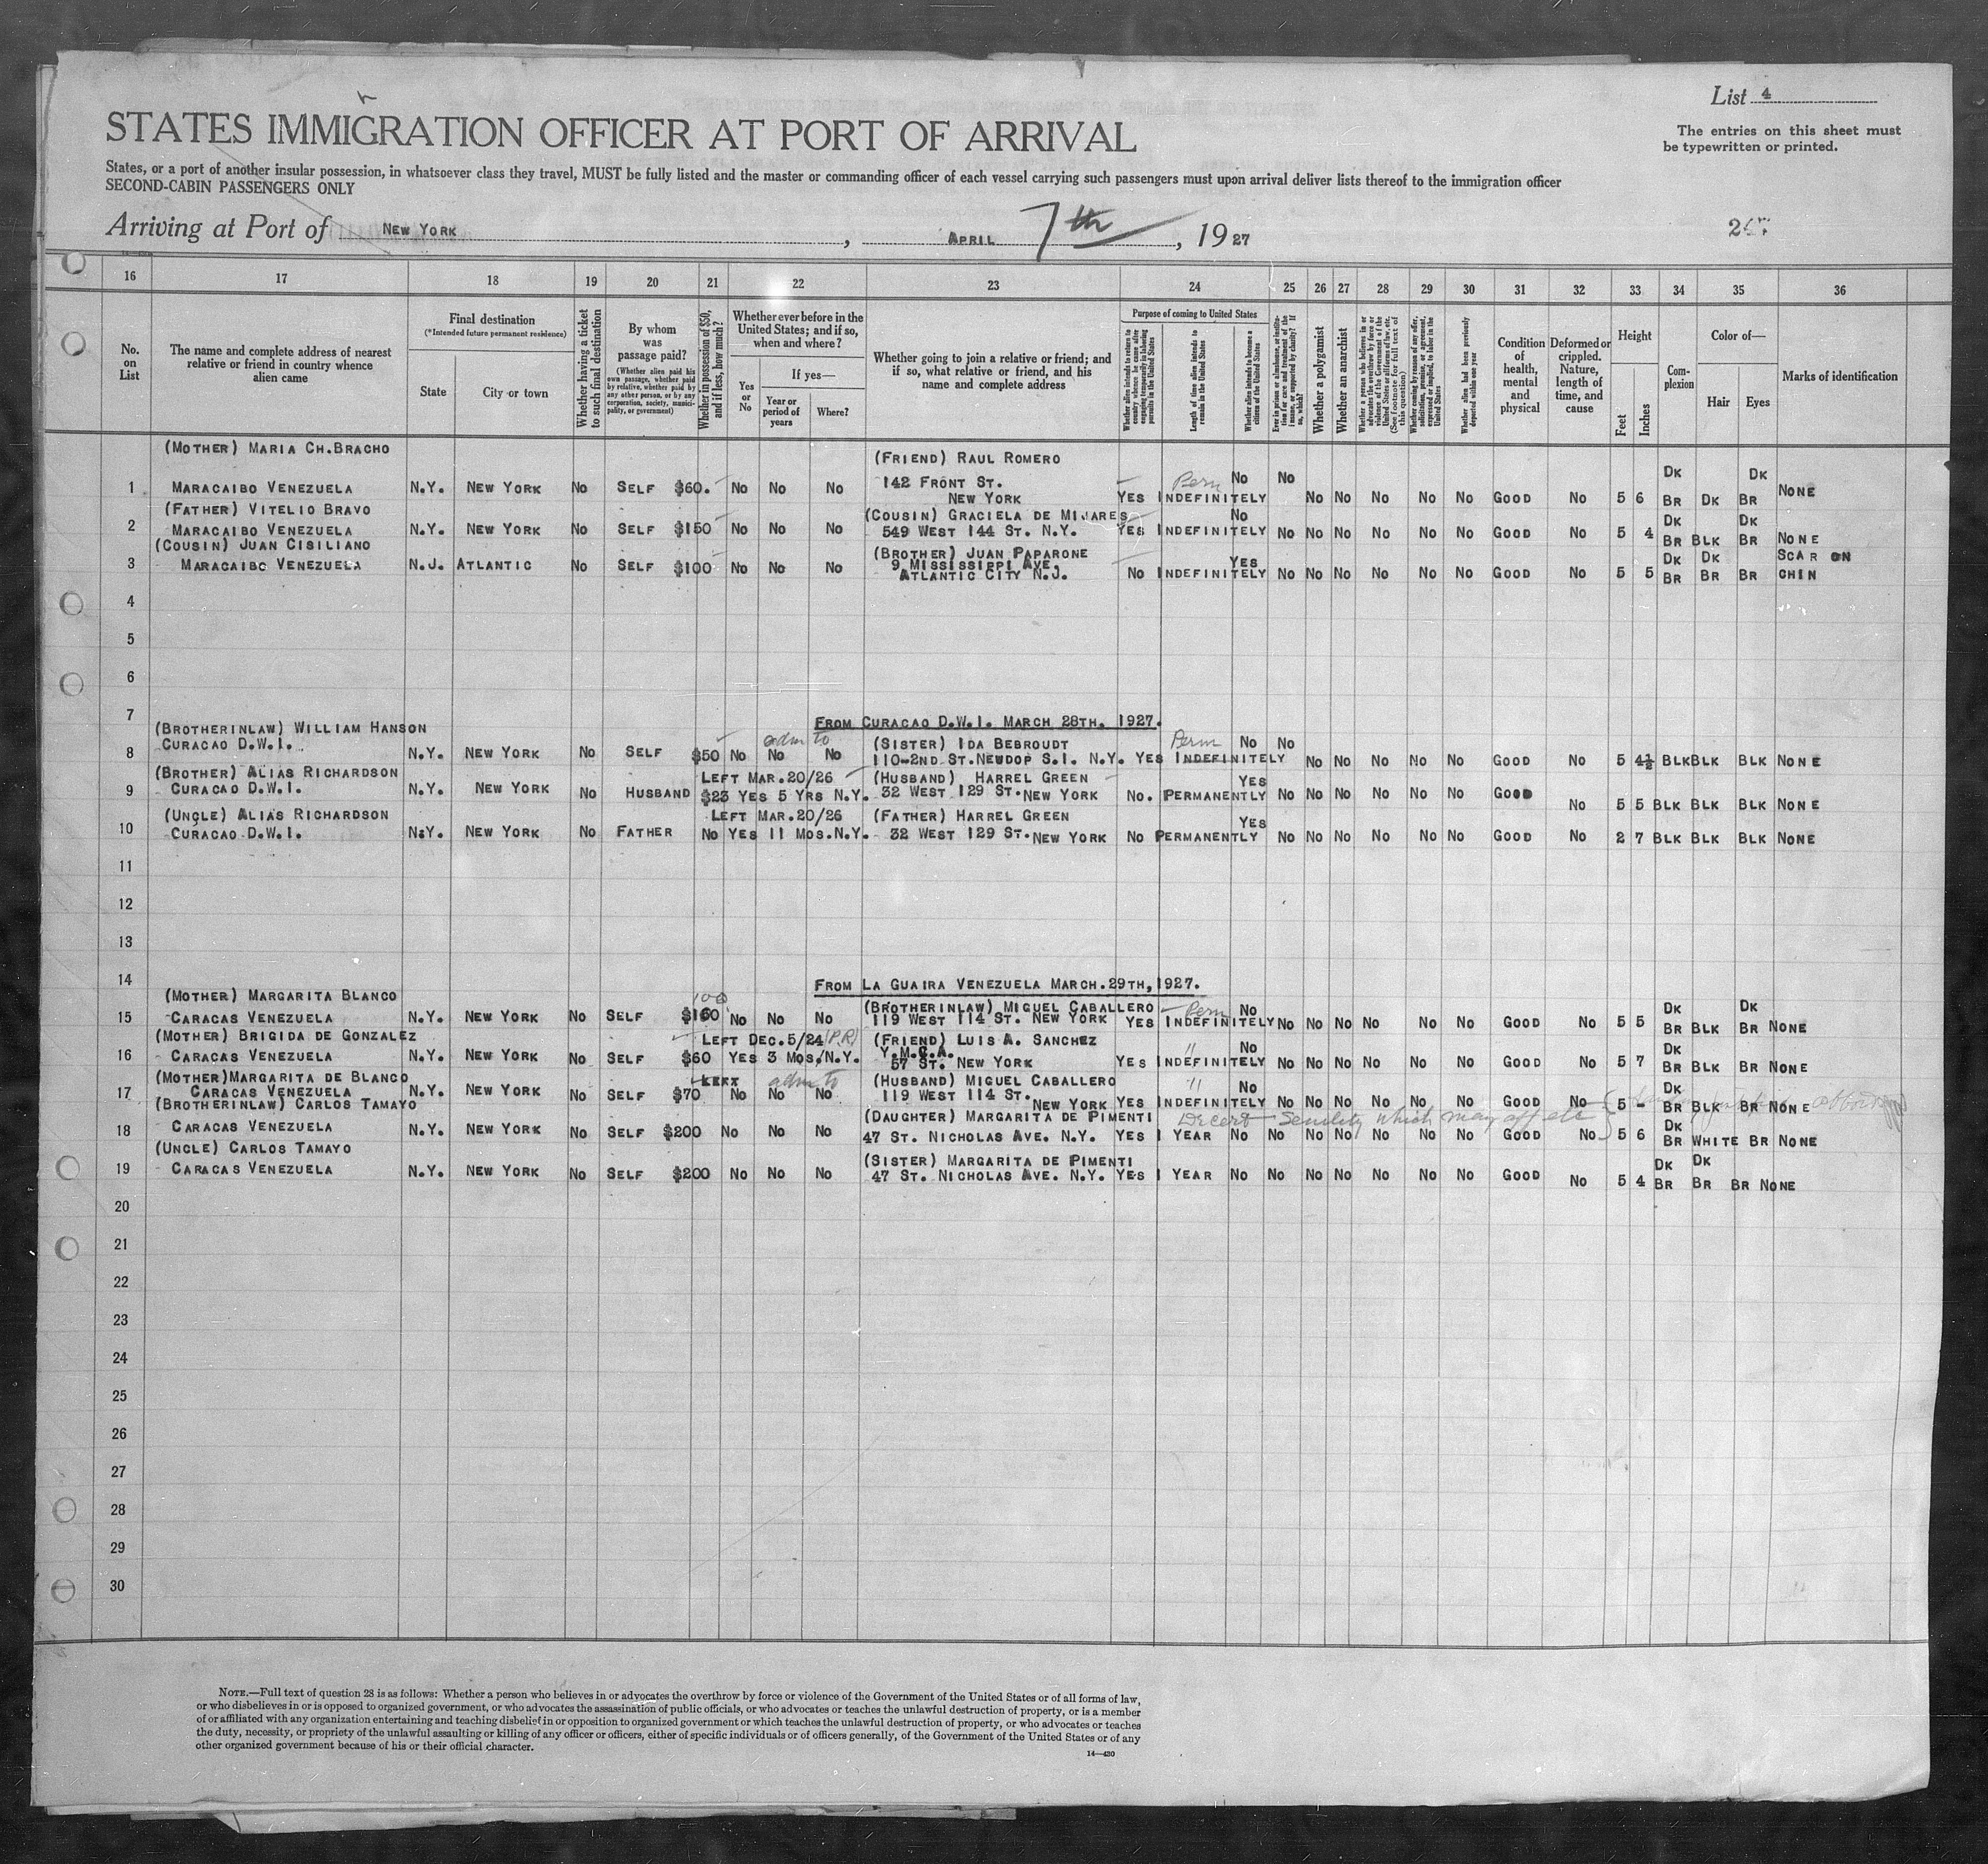 List 4
STATES IMMIGRATION OFFICER AT PORT OF ARRIVAL
The entries on this sheet must
be typewritten or printed.
States, or a port of another insular possession, in whatsoever class they travel, MUST be fully listed and the master or commanding officer of each vessel carrying such passengers must upon arrival deliver lists thereof to the immigration officer
SECOND-CABIN PASSENGERS ONLY
Arriving at Port of NEW YORK, APRIL 7th, 1927
16 17 18 19 20 21 22 23 24 25 26 27 28 29 30 31 32 33 34 35 36
No. on List
The name and complete address of nearest relative or friend in country whence alien came
Final destination
(*Intended future permanent residence)
State
City or town
Whether having a ticket to such final destination
By whom was passage paid?
(Whether alien paid his own passage, whether paid by relative, whether paid by any other person, or by any corporation, society, municipality, or government)
Whether in possession of $50, and if less, how much?
Whether ever before in the United States; and if so, when and where?
Yes or No
If yes—
Year or period of years
Where?
Whether going to join a relative or friend; and if so, what relative or friend, and his name and complete address
Purpose of coming to United States
Length of time alien intends to remain in the United States
Whether alien intends to become a citizen of the United States
Whether a polygamist
Whether an anarchist
Condition of health, mental and physical
Deformed or crippled. Nature, length of time, and cause
Height
Feet
Inches
Complexion
Color of—
Hair
Eyes
Marks of identification
(MOTHER) MARIA CH.BRACHO (FRIEND) RAUL ROMERO
1 MARACAIBO VENEZUELA N.Y. NEW YORK NO SELF $60. NO NO NO 142 FRONT ST. NEW YORK YES Perm INDEFINITELY NO NO NO NO NO NO NO GOOD NO 5 6 DK BR DK DK BR NONE
(FATHER) VITELIO BRAVO (COUSIN) GRACIELA DE MIJARES
2 MARACAIBO VENEZUELA N.Y. NEW YORK NO SELF $150 NO NO NO 549 WEST 144 ST. N.Y. YES INDEFINITELY NO NO NO NO NO NO NO GOOD NO 5 4 DK BR BLK DK BR NONE
(COUSIN) JUAN CISILIANO (BROTHER) JUAN PAPARONE
3 MARACAIBO VENEZUELA N.J. ATLANTIC NO SELF $100 NO NO NO 9 MISSISSIPPI AVE. ATLANTIC CITY N.J. NO INDEFINITELY YES NO NO NO NO NO NO GOOD NO 5 5 DK BR DK BR BR SCAR ON CHIN
4
5
6
7 FROM CURACAO D.W.I. MARCH 28TH. 1927.
(BROTHERINLAW) WILLIAM HANSON adm to (SISTER) IDA BEBROUDT
8 CURACAO D.W.I. N.Y. NEW YORK NO SELF $50 NO NO NO 110-2ND ST.NEWDOP S.I. N.Y. YES Perm INDEFINITELY NO NO NO NO NO NO NO GOOD NO 5 4½ BLK BLK BLK NONE
(BROTHER) ALIAS RICHARDSON LEFT MAR.20/26 (HUSBAND) HARREL GREEN
9 CURACAO D.W.I. N.Y. NEW YORK NO HUSBAND $23 YES 5 YRS N.Y. 32 WEST 129 ST. NEW YORK NO. PERMANENTLY YES NO NO NO NO NO NO GOOD NO 5 5 BLK BLK BLK NONE
(UNCLE) ALIAS RICHARDSON LEFT MAR.20/26 (FATHER) HARREL GREEN
10 CURACAO D.W.I. N.Y. NEW YORK NO FATHER NO YES 11 MOS.N.Y. 32 WEST 129 ST. NEW YORK NO PERMANENTLY YES NO NO NO NO NO NO GOOD NO 2 7 BLK BLK BLK NONE
11
12
13
14 FROM LA GUAIRA VENEZUELA MARCH.29TH,1927.
(MOTHER) MARGARITA BLANCO 100 (BROTHERINLAW) MIGUEL CABALLERO
15 CARACAS VENEZUELA N.Y. NEW YORK NO SELF NO NO NO 119 WEST 114 ST. NEW YORK YES Perm INDEFINITELY NO NO NO NO NO NO NO GOOD NO 5 5 DK BR BLK DK BR NONE
(MOTHER) BRIGIDA DE GONZALEZ LEFT DEC.5/24 (P.R) (FRIEND) LUIS A. SANCHEZ
16 CARACAS VENEZUELA N.Y. NEW YORK NO SELF $60 YES 3 MOS/N.Y. Y.M.C.A. 57 ST. NEW YORK YES " INDEFINITELY NO NO NO NO NO NO NO GOOD NO 5 7 DK BR BLK BR NONE
(MOTHER)MARGARITA DE BLANCO adm to (HUSBAND) MIGUEL CABALLERO
17 CARACAS VENEZUELA N.Y. NEW YORK NO SELF $70 NO NO NO 119 WEST 114 ST. NEW YORK YES " INDEFINITELY NO NO NO NO NO NO NO GOOD NO 5 - DK BR BLK BR NONE
(BROTHERINLAW) CARLOS TAMAYO (DAUGHTER) MARGARITA DE PIMENTI Dr cert Senility which may affect
18 CARACAS VENEZUELA N.Y. NEW YORK NO SELF $200 NO NO NO 47 ST. NICHOLAS AVE. N.Y. YES 1 YEAR NO NO NO NO NO NO NO GOOD NO 5 6 DK BR WHITE BR NONE
(UNCLE) CARLOS TAMAYO (SISTER) MARGARITA DE PIMENTI
19 CARACAS VENEZUELA N.Y. NEW YORK NO SELF $200 NO NO NO 47 ST. NICHOLAS AVE. N.Y. YES 1 YEAR NO NO NO NO NO NO NO GOOD NO 5 4 DK BR DK BR BR NONE
20
21
22
23
24
25
26
27
28
29
30
NOTE.—Full text of question 28 is as follows: Whether a person who believes in or advocates the overthrow by force or violence of the Government of the United States or of all forms of law,
or who disbelieves in or is opposed to organized government, or who advocates the assassination of public officials, or who advocates or teaches the unlawful destruction of property, or is a member
of or affiliated with any organization entertaining and teaching disbelief in or opposition to organized government or which teaches the unlawful destruction of property, or who advocates or teaches
the duty, necessity, or propriety of the unlawful assaulting or killing of any officer or officers, either of specific individuals or of officers generally, of the Government of the United States or of any
other organized government because of his or their official character.
14—430